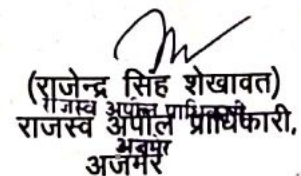 (राजेन्द्र सिंह शेखावत)
राजस्व अपील प्राधिकारी
राजस्व अपील प्राधिकारी,
अजमेर